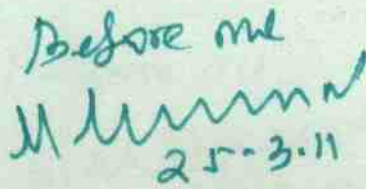 Before me
25-3-11